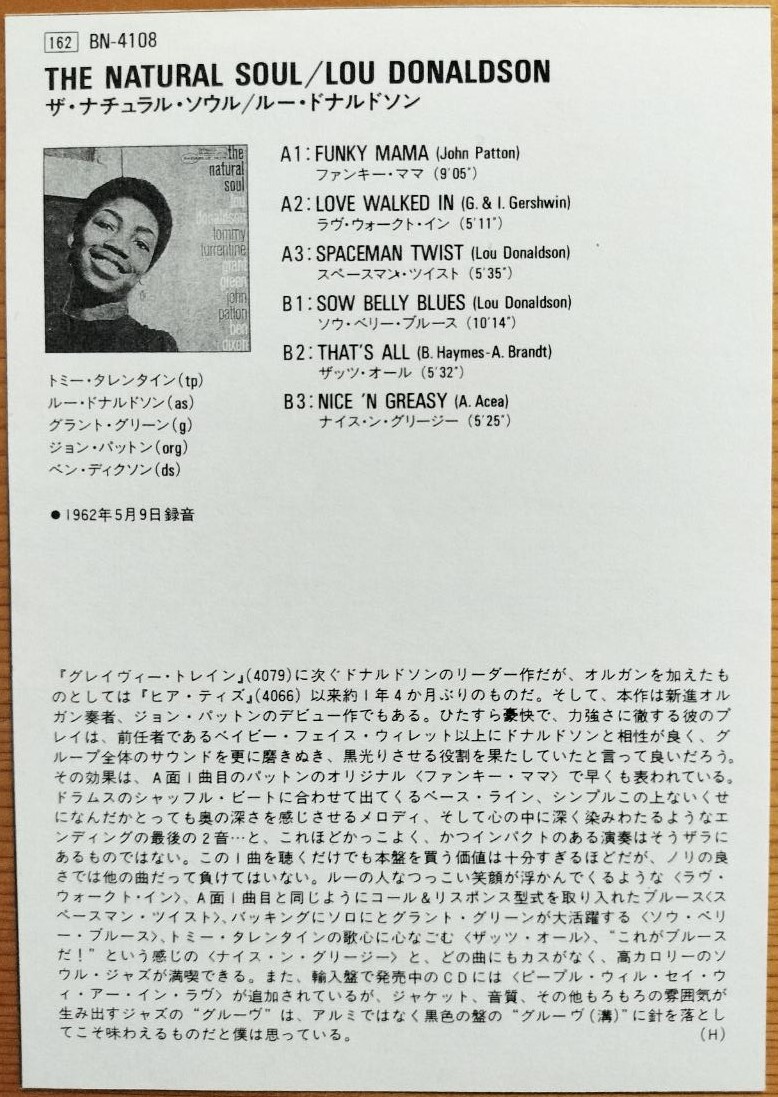 162 BN-4108
THE NATURAL SOUL/LOU DONALDSON
ザ・ナチュラル・ソウル/ルー・ドナルドソン
the
natural
soul
lou
donaldson
tommy
turrentine
grant
green
john
patton
ben
dixon
トミー・タレンタイン(tp)
ルー・ドナルドソン(as)
グラント・グリーン(g)
ジョン・パットン(org)
ベン・ディクソン(ds)
●1962年5月9日録音
A1:FUNKY MAMA (John Patton)
ファンキー・ママ (9'05")
A2:LOVE WALKED IN (G. & I. Gershwin)
ラヴ・ウォークト・イン (5'11")
A3:SPACEMAN TWIST (Lou Donaldson)
スペースマン・ツイスト (5'35")
B1:SOW BELLY BLUES (Lou Donaldson)
ソウ・ベリー・ブルース (10'14")
B2:THAT'S ALL (B. Haymes-A. Brandt)
ザッツ・オール (5'32")
B3:NICE 'N GREASY (A. Acea)
ナイス・ン・グリージー (5'25")
『グレイヴィー・トレイン』(4079)に次ぐドナルドソンのリーダー作だが、オルガンを加えたも
のとしては『ヒア・ティズ』(4066) 以来約1年4か月ぶりのものだ。そして、本作は新進オル
ガン奏者、ジョン・パットンのデビュー作でもある。ひたすら豪快で、力強さに徹する彼のプ
レイは、前任者であるベイビー・フェイス・ウィレット以上にドナルドソンと相性が良く、グ
ループ全体のサウンドを更に磨きぬき、黒光りさせる役割を果たしていたと言って良いだろう。
その効果は、A面1曲目のパットンのオリジナル〈ファンキー・ママ〉で早くも表われている。
ドラムスのシャッフル・ビートに合わせて出てくるベース・ライン、シンプルこの上ないくせ
になんだかとっても奥の深さを感じさせるメロディ、そして心の中に深く染みわたるようなエ
ンディングの最後の2音…と、これほどかっこよく、かつインパクトのある演奏はそうザラに
あるものではない。この1曲を聴くだけでも本盤を買う価値は十分すぎるほどだが、ノリの良
さでは他の曲だって負けてはいない。ルーの人なつっこい笑顔が浮かんでくるような〈ラヴ・
ウォークト・イン〉、A面1曲目と同じようにコール&リスポンス型式を取り入れたブルース〈ス
ペースマン・ツイスト〉、バッキングにソロにとグラント・グリーンが大活躍する〈ソウ・ベリ
ー・ブルース〉、トミー・タレンタインの歌心に心なごむ〈ザッツ・オール〉、“これがブルース
だ!”という感じの〈ナイス・ン・グリージー〉と、どの曲にもカスがなく、高カロリーのソ
ウル・ジャズが満喫できる。また、輸入盤で発売中のCDには〈ピープル・ウィル・セイ・ウ
ィ・アー・イン・ラヴ〉が追加されているが、ジャケット、音質、その他もろもろの雰囲気が
生み出すジャズの“グルーヴ”は、アルミではなく黒色の盤の“グルーヴ(溝)”に針を落とし
てこそ味わえるものだと僕は思っている。 (H)